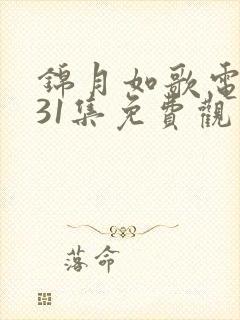 錦月如歌電
31集免費觀
落命